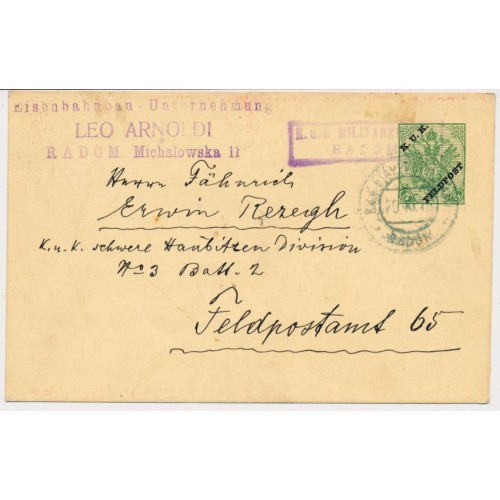 Eisenbahnbau-Unternehmung
LEO ARNOLDI
RADOM Michalowska 11
K.u.K. MILITÄRZ
RADOM
K.U.K.
FELDPOST
RADOM
Herrn Fähnrich
Erwin Rezegh
K. u. K. schwere Haubitzen Division
No 3 Batt. 2
Feldpostamt 65